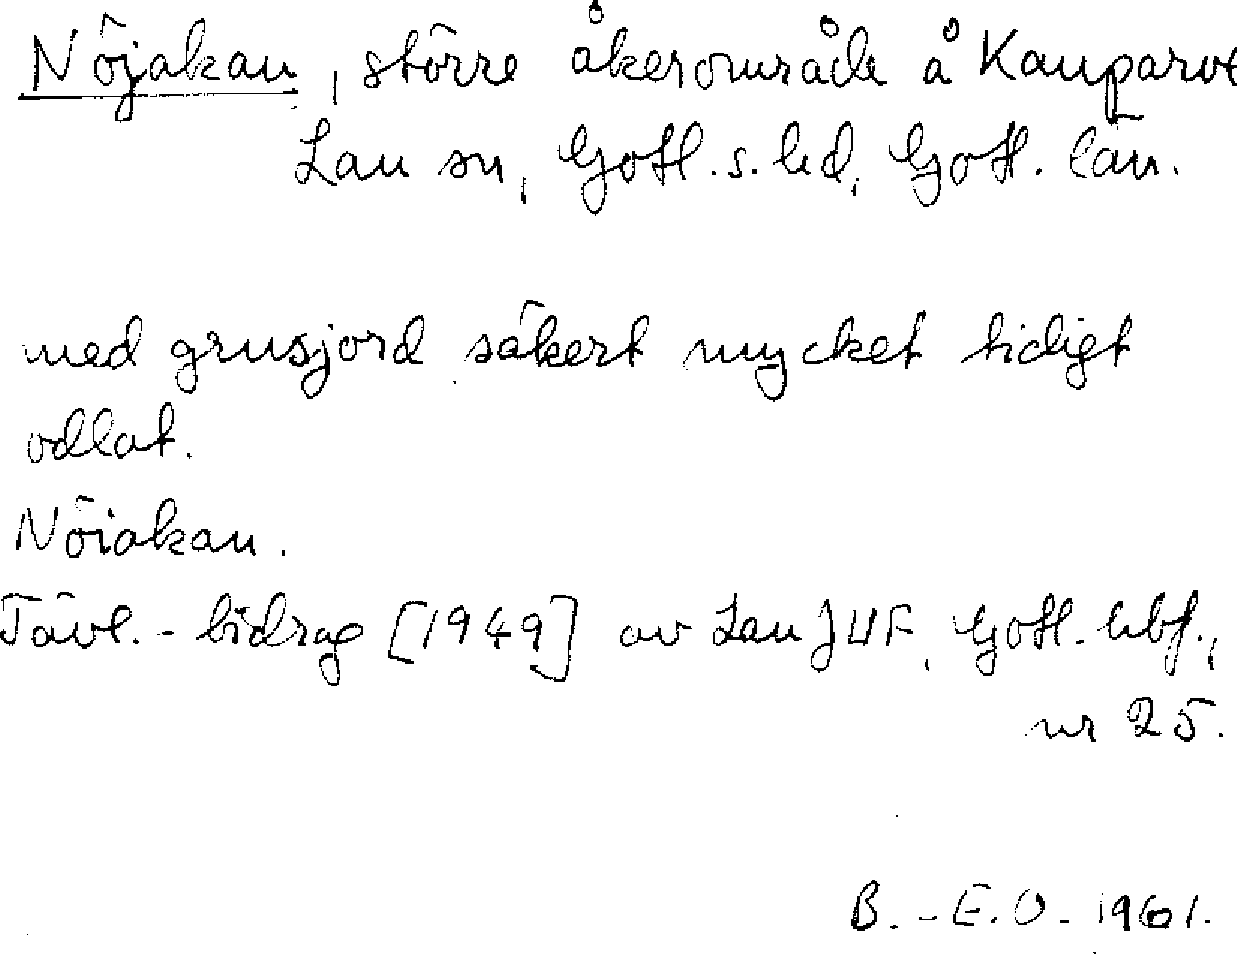 Nöjakan, större åkerområde å Kauparve
Lau sn, Gotl. s. hd, Gotl. län.
med grusjord säkert mycket tidigt
odlat.
Nöiakan.
Tävl.-bidrag [1949] av Lau JUF, Gotl. hbf.,
nr 25.
B.-E. O. 1961.